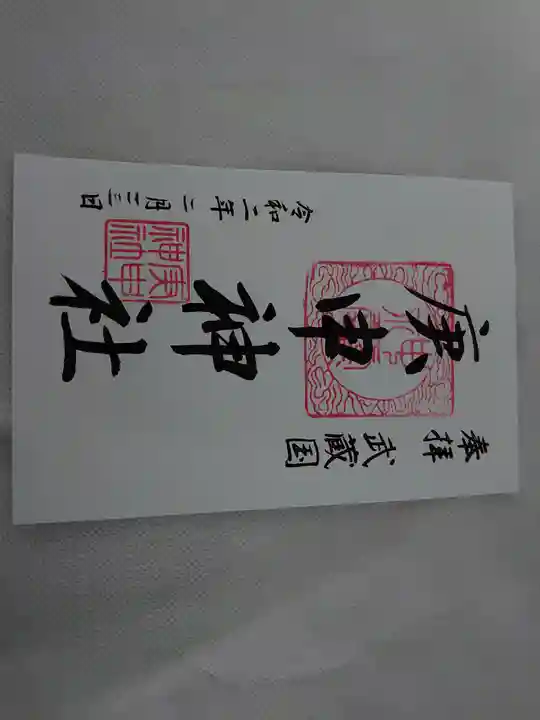 奉拝 武蔵国
庚申神社
庚申
神社
令和二年二月二三日